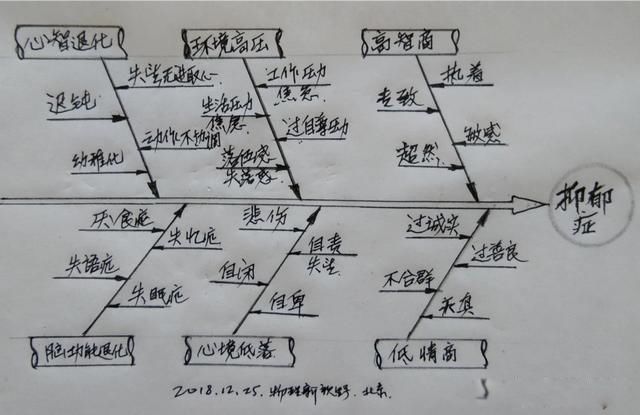 心智退化
环境高压
高智商
失望无进取心
迟钝
动作不协调
幼稚化
工作压力
焦急
生活压力
焦急
过自尊压力
落伍感
失落感
执着
专致
敏感
超然
抑郁
症
厌食症
失忆症
失语症
失眠症
悲伤
自责
失望
自闭
自卑
过诚实
过善良
不合群
天真
脑功能退化
心境低落
低情商
2018.12.25.
北京.